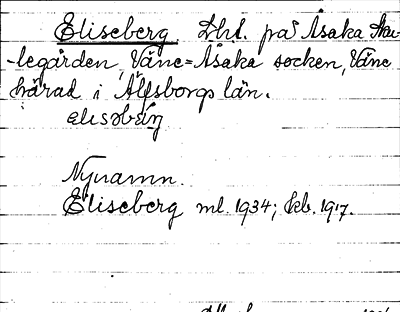 Eliseberg. Lht. på Åsaka Sku-
-legården, Väne=Åsaka socken, Väne
härad i Älfsborgs län.
Nynamn.
Eliseberg ml. 1934; kb. 1917.